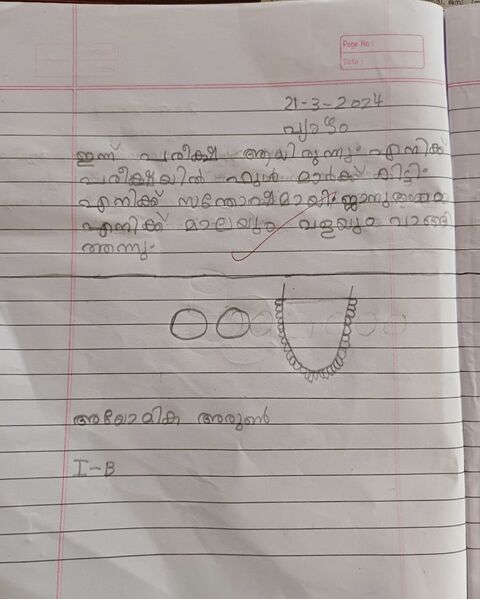 Page No :
Date :
21-3-2024
വ്യാഴം
ഇന്ന് പരീക്ഷ ആയിരുന്നു. എനിക്ക്
പരീക്ഷയിൽ ഫുൾ മാർക്ക് കിട്ടി.
എനിക്ക് സന്തോഷമായി.
എനിക്ക് മാലയും വളയും വാങ്ങി
തന്നു.
അരുൺ
I-B